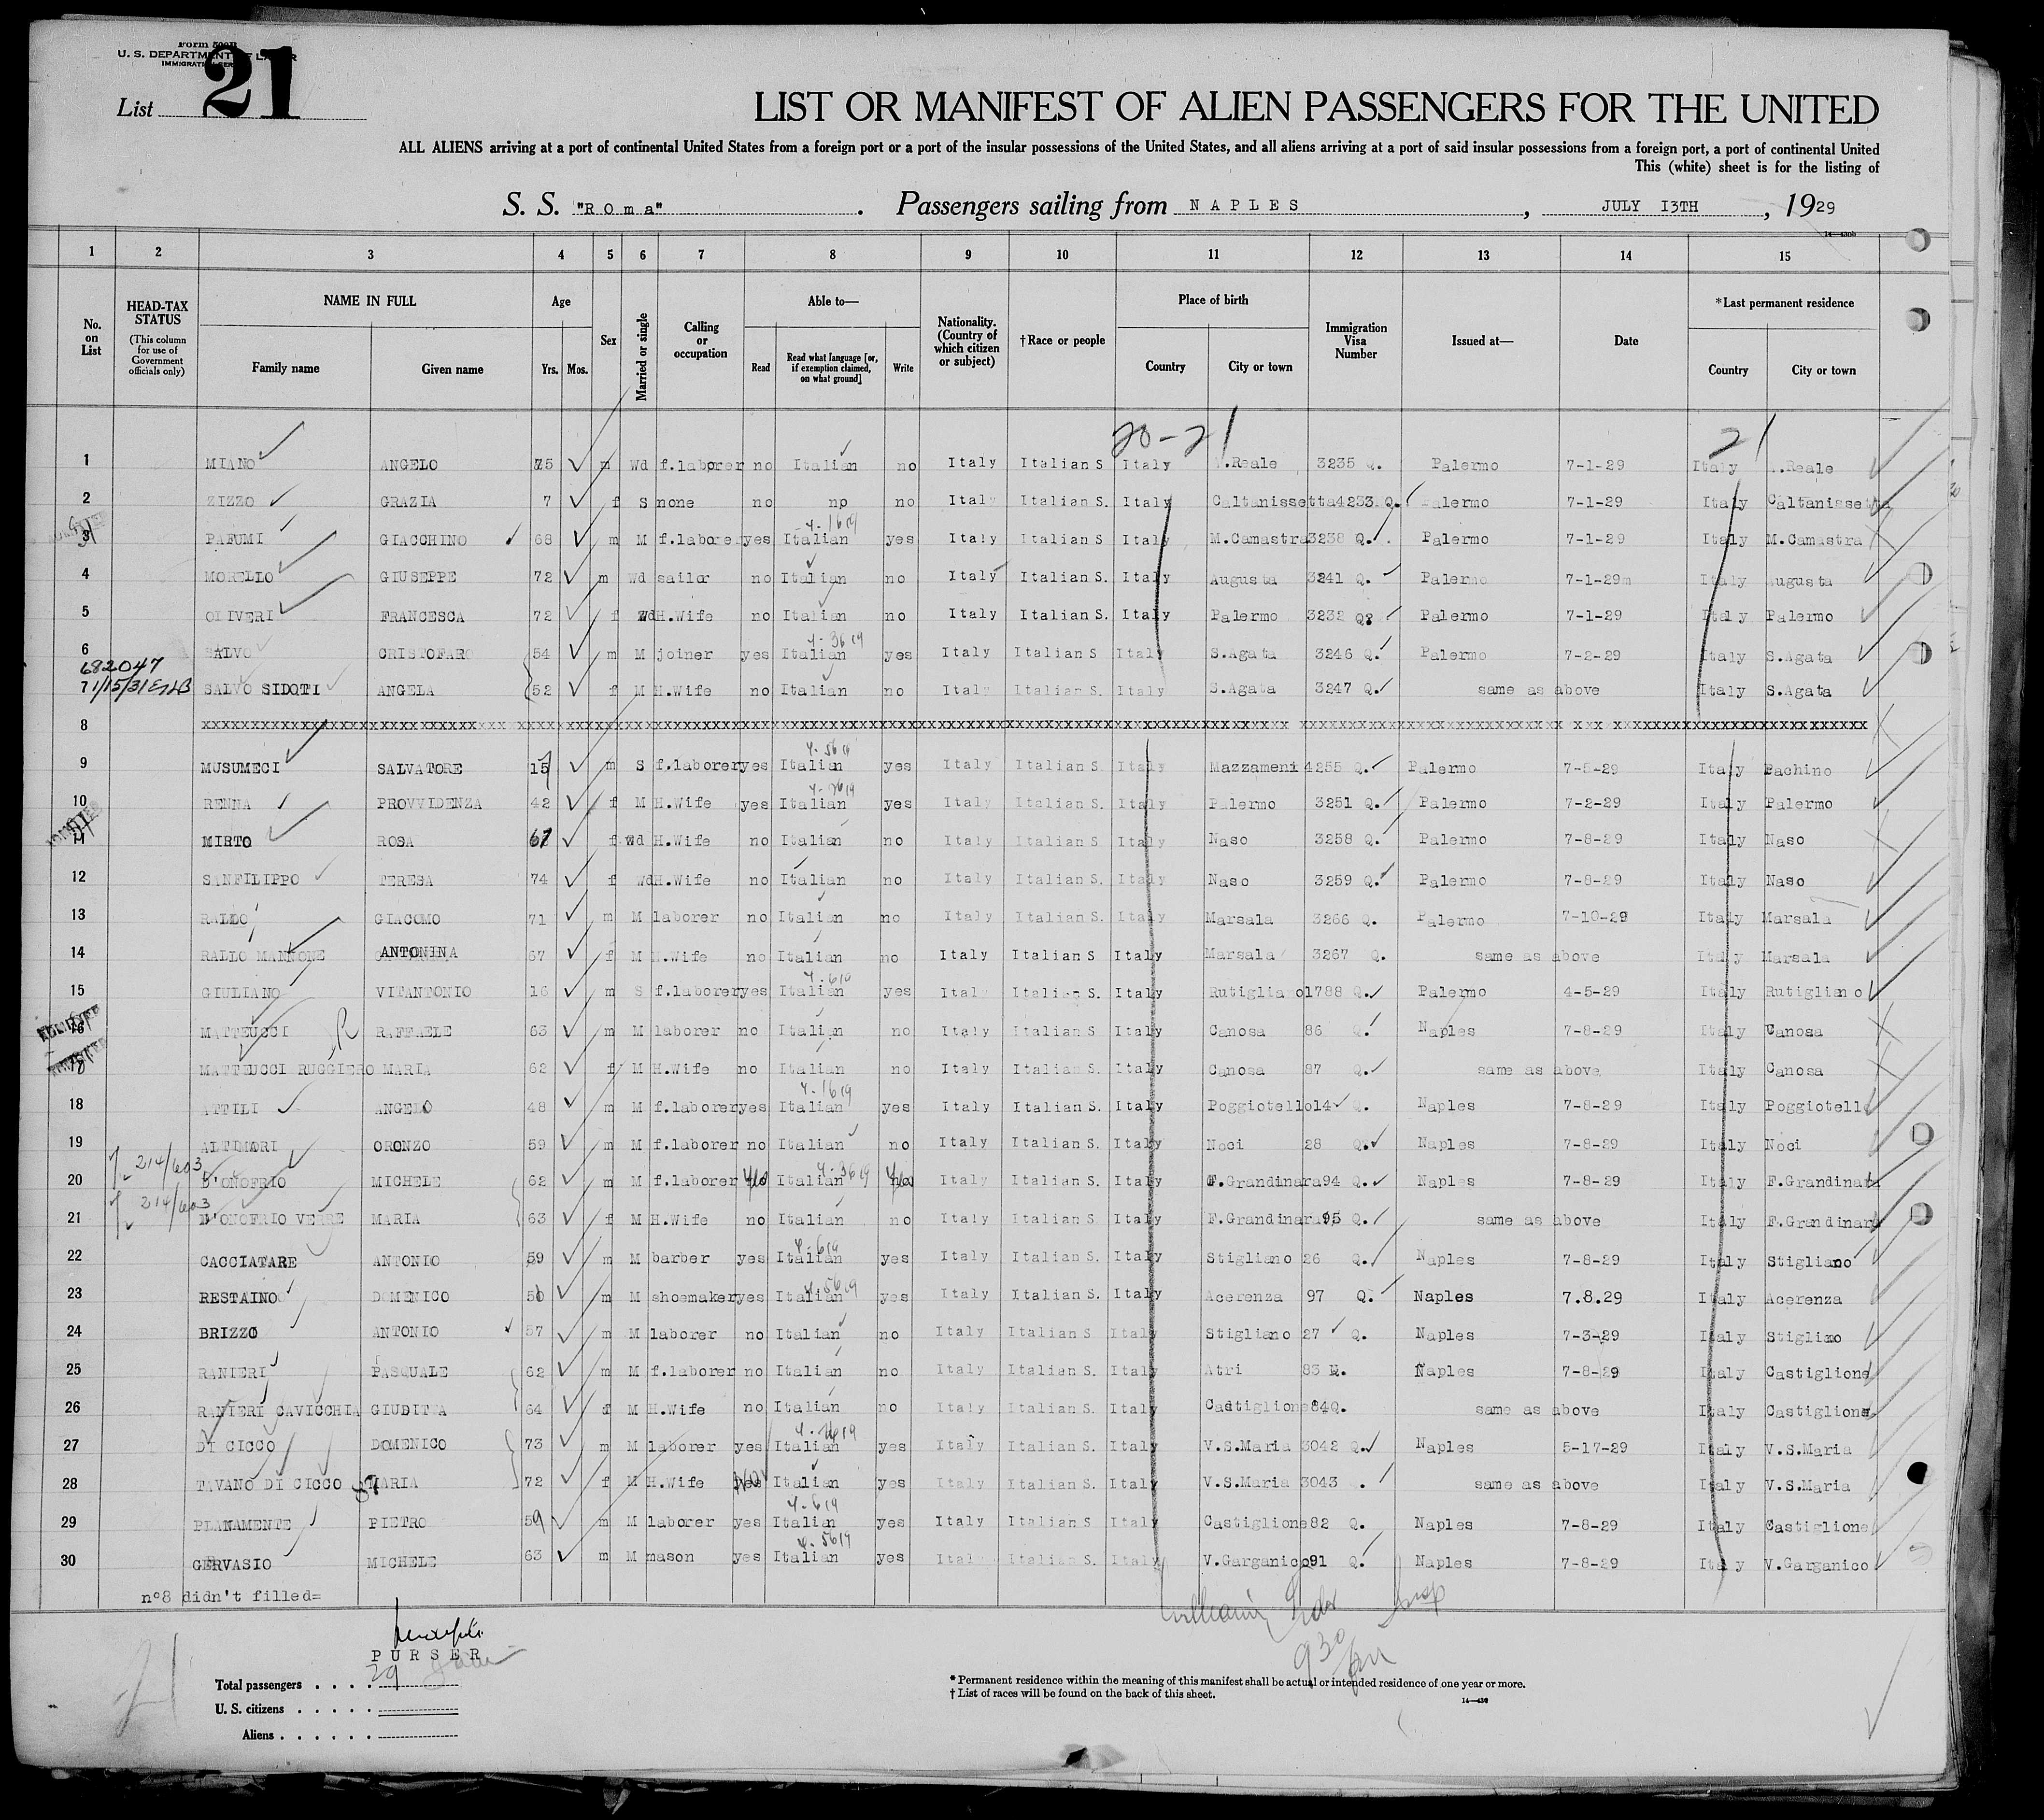 Form 500B
U. S. DEPARTMENT OF LABOR
IMMIGRATION SERVICE
List 21
LIST OR MANIFEST OF ALIEN PASSENGERS FOR THE UNITED
ALL ALIENS arriving at a port of continental United States from a foreign port or a port of the insular possessions of the United States, and all aliens arriving at a port of said insular possessions from a foreign port, a port of continental United
This (white) sheet is for the listing of
S. S. "Roma". Passengers sailing from NAPLES, JULY I3TH, 1929
14—430b
1 2 3 4 5 6 7 8 9 10 11 12 13 14 15
No. on List HEAD-TAX STATUS (This column for use of Government officials only) NAME IN FULL Family name Given name Age Yrs. Mos. Sex Married or single Calling or occupation Able to— Read Read what language [or, if exemption claimed, on what ground] Write Nationality. (Country of which citizen or subject) †Race or people Place of birth Country City or town Immigration Visa Number Issued at— Date *Last permanent residence Country City or town
20-21 21
1 MIANO ANGELO 75 m Wd f.laborer no Italian no Italy Italian S Italy .Reale 3235 Q. Palermo 7-1-29 Italy .Reale
2 ZIZZO GRAZIA 7 f S none no no no Italy Italian S. Italy Caltanissetta 4233 Q. Palermo 7-1-29 Italy Caltanissetta
3 PAFUMI GIACCHINO 68 m M f.laborer yes Italian yes Italy Italian S Italy M.Camastra 3238 Q. Palermo 7-1-29 Italy M.Camastra
4 MORELLO GIUSEPPE 72 m Wd sailor no Italian no Italy Italian S. Italy Augusta 3241 Q. Palermo 7-1-29m Italy Augusta
5 OLIVERI FRANCESCA 72 f Wd H.Wife no Italian no Italy Italian S. Italy Palermo 3232 Q. Palermo 7-1-29 Italy Palermo
6 SALVO CRISTOFARO 54 m M joiner yes Italian yes Italy Italian S Italy S.Agata 3246 Q. Palermo 7-2-29 Italy S.Agata
682047
7 1/15/31 SALVO SIDOTI ANGELA 52 f M H.Wife no Italian no Italy Italian S. Italy S.Agata 3247 Q. same as above Italy S.Agata
8
9 MUSUMECI SALVATORE 15 m S f.laborer yes Italian yes Italy Italian S. Italy Mazzameni 4255 Q. Palermo 7-5-29 Italy Pachino
10 RENNA PROVVIDENZA 42 f M H.Wife yes Italian yes Italy Italian S. Italy Palermo 3251 Q. Palermo 7-2-29 Italy Palermo
11 MIRTO ROSA 67 f Wd H.Wife no Italian no Italy Italian S Italy Naso 3258 Q. Palermo 7-8-29 Italy Naso
12 SANFILIPPO TERESA 74 f Wd H.Wife no Italian no Italy Italian S. Italy Naso 3259 Q. Palermo 7-8-29 Italy Naso
13 RALLO GIACOMO 71 m M laborer no Italian no Italy Italian S. Italy Marsala 3266 Q. Palermo 7-10-29 Italy Marsala
14 RALLO MANNONE ANTONINA 67 f M H.Wife no Italian no Italy Italian S Italy Marsala 3267 Q. same as above Italy Marsala
15 GIULIANO VITANTONIO 16 m S f.laborer yes Italian yes Italy Italian S. Italy Rutigliano 1788 Q. Palermo 4-5-29 Italy Rutigliano
16 MATTEUCCI RAFFAELE 63 m M laborer no Italian no Italy Italian S Italy Canosa 86 Q. Naples 7-8-29 Italy Canosa
MATTEUCCI RUGGIERO MARIA 62 f M H.Wife no Italian no Italy Italian S. Italy Canosa 87 Q. same as above Italy Canosa
18 ATTILI ANGELO 48 m M f.laborer yes Italian yes Italy Italian S. Italy Poggiotello 14 Q. Naples 7-8-29 Italy Poggiotello
19 ALTIMARI ORONZO 59 m M f.laborer no Italian no Italy Italian S. Italy Noci 28 Q. Naples 7-8-29 Italy Noci
20 214/603 D'ONOFRIO MICHELE 62 m M f.laborer Italian Italy Italian S. Italy F.Grandinara 94 Q. Naples 7-8-29 Italy F.Grandinara
21 214/603 D'ONOFRIO VERRE MARIA 63 f M H.Wife no Italian no Italy Italian S. Italy F.Grandinara 95 Q. same as above Italy F.Grandinara
22 CACCIATARE ANTONIO 59 m M barber yes Italian yes Italy Italian S. Italy Stigliano 26 Q. Naples 7-8-29 Italy Stigliano
23 RESTAINO DOMENICO 50 m M shoemaker yes Italian yes Italy Italian S. Italy Acerenza 97 Q. Naples 7.8.29 Italy Acerenza
24 BRIZZO ANTONIO 57 m M laborer no Italian no Italy Italian S Italy Stigliano 27 Q. Naples 7-3-29 Italy Stiglino
25 RANIERI PASQUALE 62 m M f.laborer no Italian no Italy Italian S. Italy Atri 83 Naples 7-8-29 Italy Castiglione
26 RANIERI CAVICCHIA GIUDITTA 64 f M H.Wife no Italian no Italy Italian S. Italy Castiglione 84Q. same as above Italy Castiglione
27 DI CICCO DOMENICO 73 m M laborer yes Italian yes Italy Italian S. Italy V.S.Maria 3042 Q. Naples 5-17-29 Italy V.S.Maria
28 TAVANO DI CICCO MARIA 72 f M H.Wife Italian yes Italy Italian S. Italy V.S.Maria 3043 same as above Italy V.S.Maria
29 PLANAMENTE PIETRO 59 m M laborer yes Italian yes Italy Italian S Italy Castiglione 82 Q. Naples 7-8-29 Italy Castiglione
30 GERVASIO MICHELE 63 m M mason yes Italian yes Italy Italian S. Italy V.Garganico 91 Q. Naples 7-8-29 Italy V.Garganico
n°8 didn't filled=
PURSER
Total passengers . . . . 29
U. S. citizens . . . . .
Aliens . . . . . .
21
930
* Permanent residence within the meaning of this manifest shall be actual or intended residence of one year or more.
† List of races will be found on the back of this sheet.
14—430